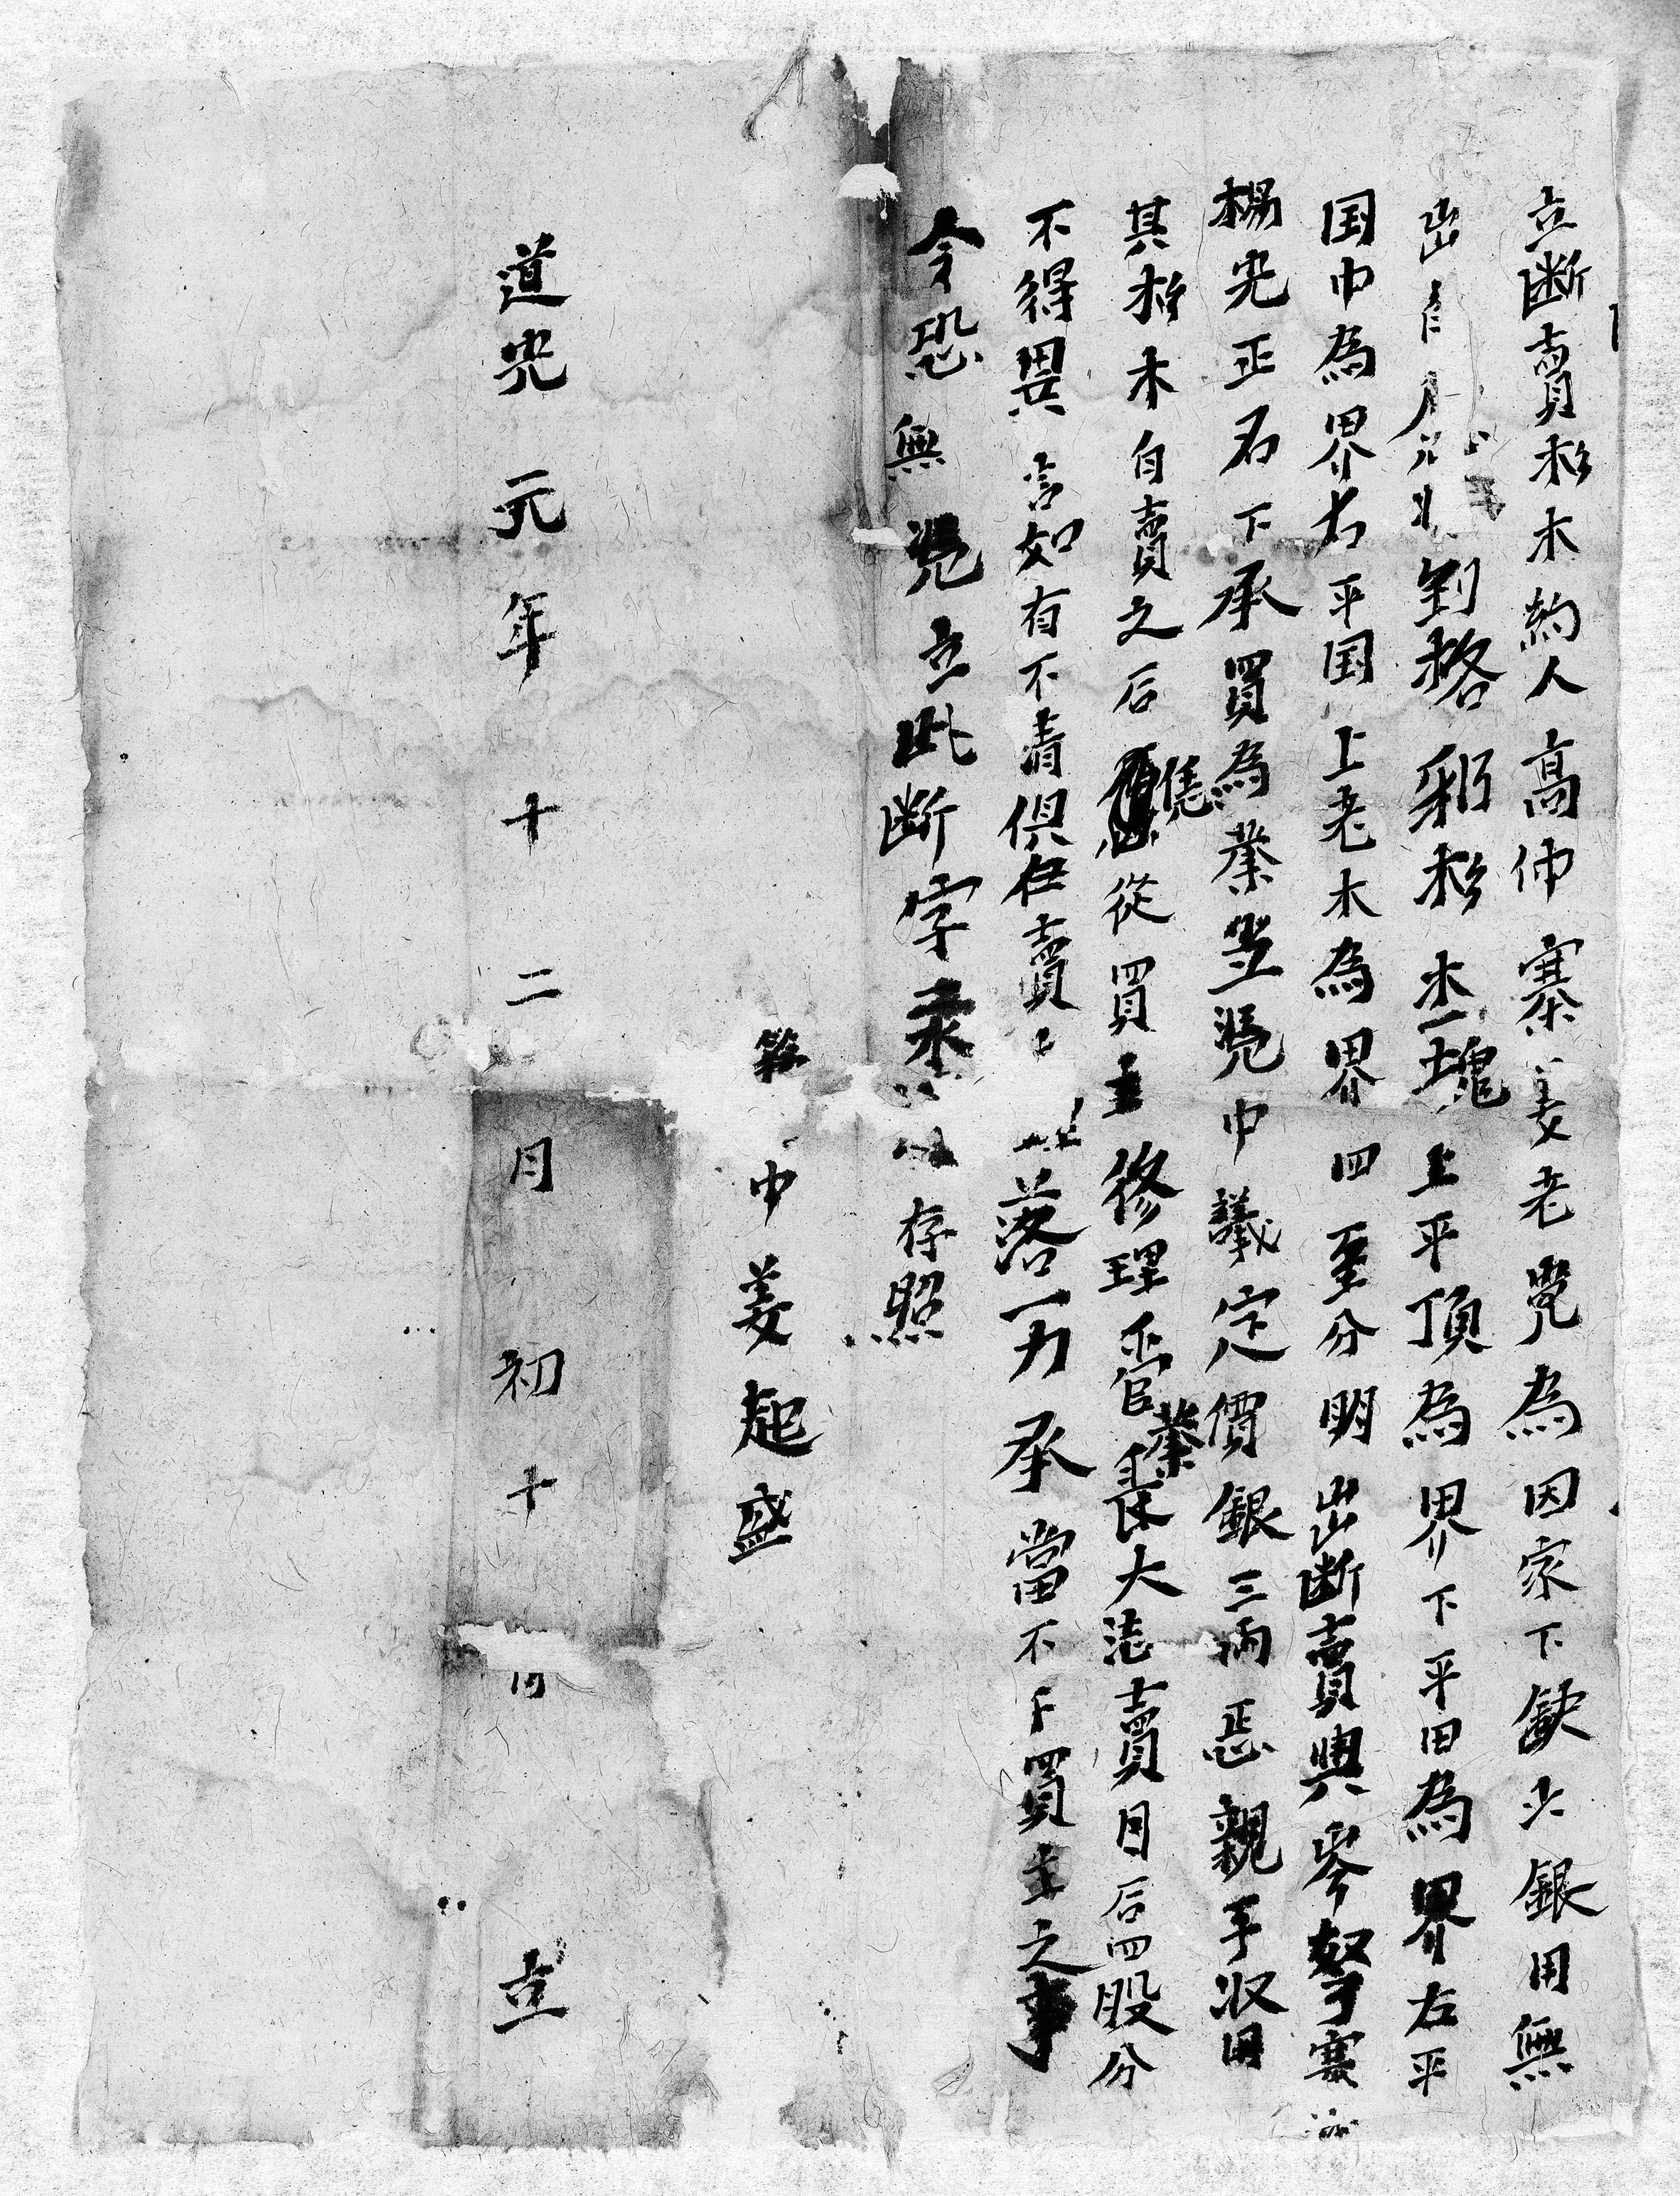 立断賣杉木約人高仲寨姜老晃為因家下缺少銀用無
出自 到格翁杉木一塊上平頂為界下平田為界左平
国中為界右平国上老木為界四至分明出断賣與岑努寨
楊光正名下承買為業当凴中議定價銀三両正親手收用
其杉木自賣之后凴從買主修理管業長大法賣日后四股分
不得異言如有不清俱在賣 落一力承當不干買主之事
今恐無凴立此断字 存照
筆中姜起盛
道光元年十二月初十日 立